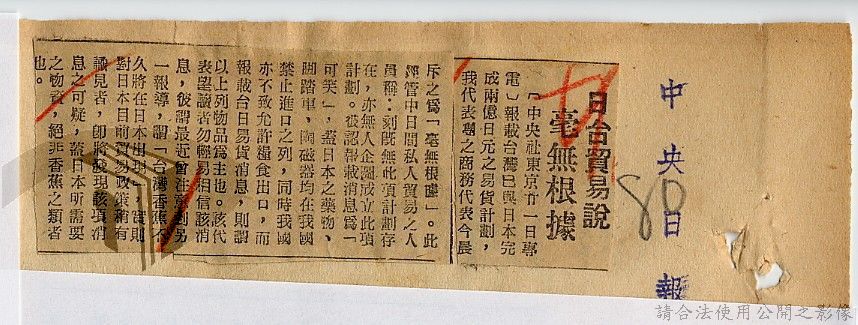 中央日報
80
日台貿易說
毫無根據
〔中央社東京廿一日專
電〕報載台灣已與日本完
成兩億日元之易貨計劃，
我代表團之商務代表今晨
斥之爲「毫無根據」。此
經管中日間私人貿易之人
員稱：刻既無此項計劃存
在，亦無人企圖成立此項
計劃。彼認報載消息爲一
可笑」，蓋日本之藥物、
脚踏車，陶磁器均在我國
禁止進口之列，同時我國
亦不致允許糧食出口，而
報載台日易貨消息，則謂
以上列物品爲主也。該代
表望讀者勿輕易相信該消
息，彼謂最近曾注意到另
一報導，謂「台灣香蕉不
久將在日本出現」，實則
對日本目前貿易政策稍有
識見者，即將發現該項消
息之可疑，蓋日本所需要
之物資，絕非香蕉之類者
也。
請合法使用公開之影像